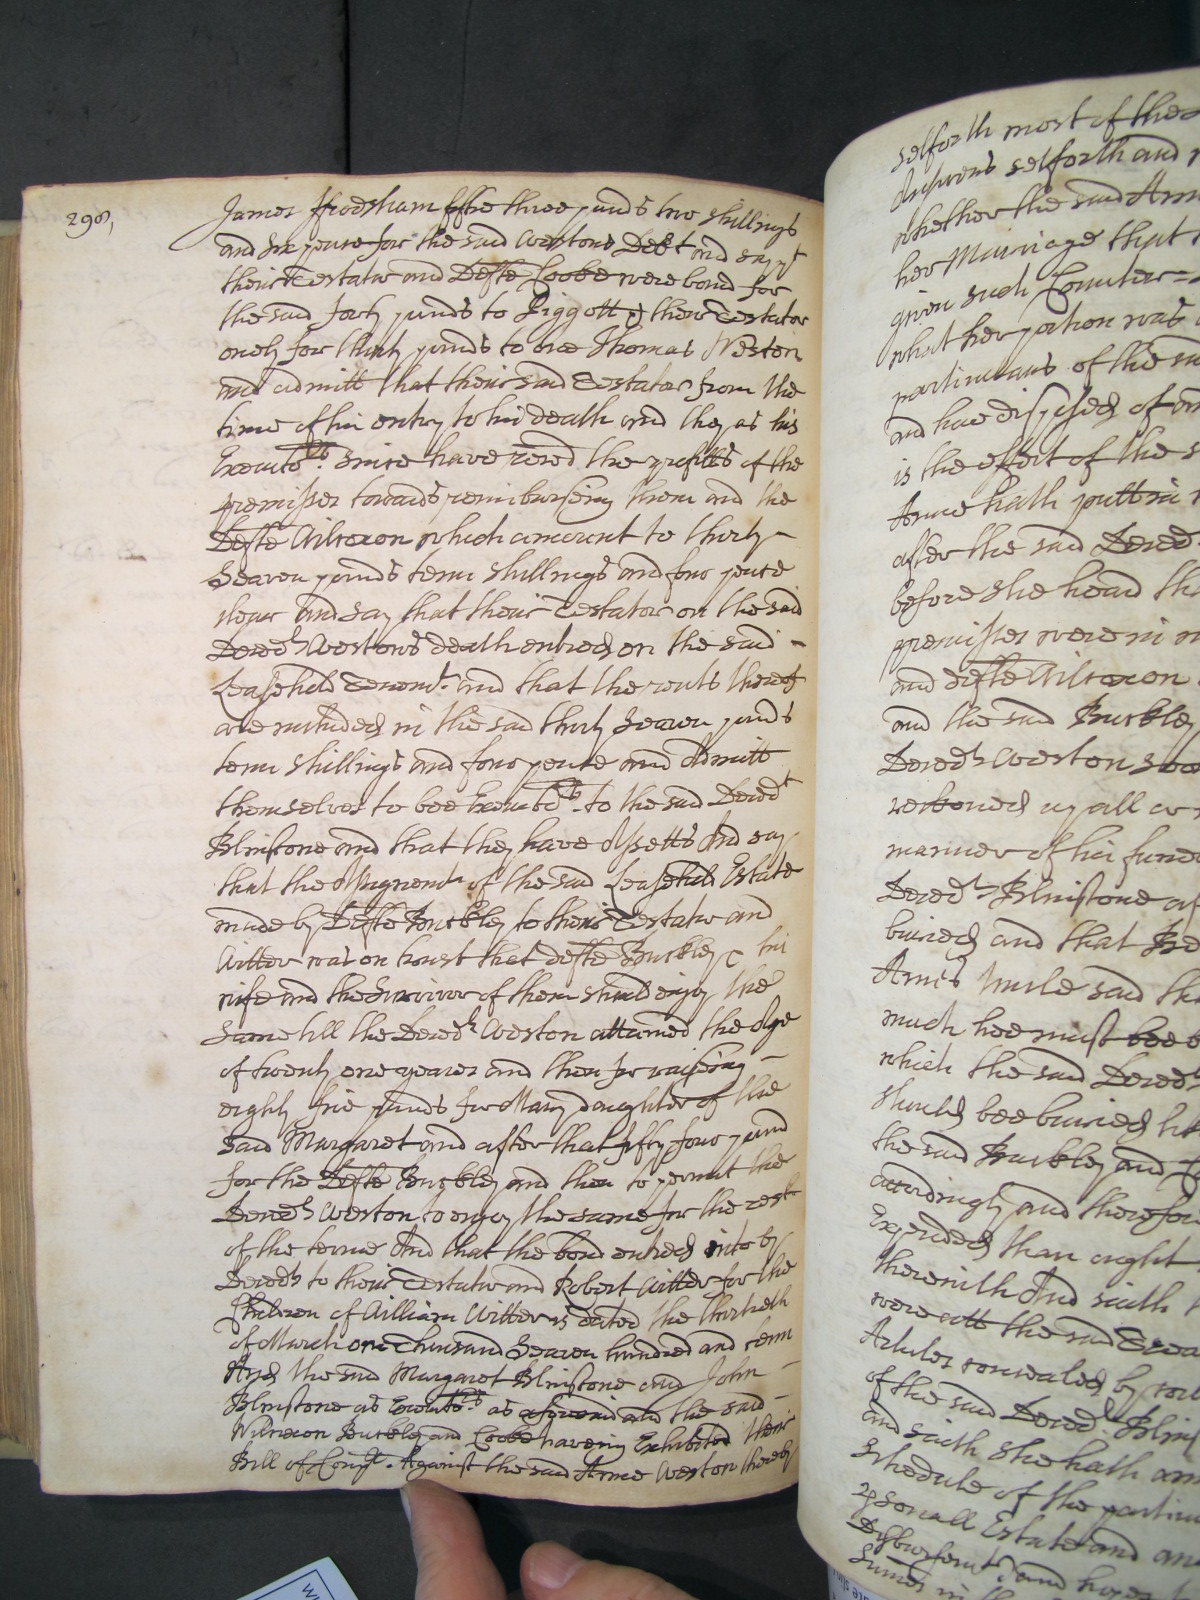 298,
James Frodsham Esqe three pounds two shillings
and six pence for the said Westons Debt and say yt
their Testator and Defte Cooke were bond for
the said forty pounds to Piggott & their Testator
onely for thirty pounds to one Thomas Weston
and admitt that their said Testator from the
time of his entry to his death and they as his
Executors. since have reced the profitts of the
premisses towards reimbursing them and the
Defte Wilcoxon which amount to thirty
Seaven pounds tenn shillings and four pence
clear and say that their Testator on the said
Deced.ts Westons death entred on the said
Leasehold Tenemt. and that the rents thereof
are included in the said thirty Seaven pounds
tenn shillings and four pence and Admitt
themselves to bee Executors. to the said Deced.t
Blinstone and that they have Assetts And say
that the Assignemt of the said Leasehold Estate
made by Defte Buckley to their Testator and
Witter was on trust that defte Buckley & his
wife and the Survivor of them should enjoy the
same till the Deced.t Weston attained the Age
of twenty one yeares and then for raiseing
eighty five pounds for Mary daughter of the
said Margaret and after that fifty four pound
for the Defte Buckley and then to permit the
Deced.t Weston to enjoy the same for the rest
of the terme And that the bond entred into by
Deced.ts to their Testator and Robert Witter for the
Children of William Witter is dated the thirtieth
of March one Thousand Seaven hundred and tenn
And the said Margaret Blinstone and John
Blinstone as Executors. as aforesaid and the said
Wilcoxon Buckley and Cooke haveing Exhibited their
Bill of Complt. Against the said Anne Weston thereby
selforth most of the
Answers selforth and
whether the said Ann
her Marriage that
given such Counter=
what her portion was
particulars of the sa
and how disposed of an
is the effect of the s
Anne hath putt in
after the said Deced.
before she heard th
premisses were in
and defte Wilcoxon
and the said Buckley
Deced.ts Weston
reckoned up all
manner of his fune
Deced.ts Blinstone
buried and that
Ann's Uncle said th
much hee must bee
which the said Deced.ts
should bee buried
the said Buckley and
accordingly and therefor
Expended than ought
therewith And saith
were att the said
Articles concealed by
of the said Deced.ts Blins
and saith she hath
Schedule of the particu
psonall Estate and an
Disbursemts. and hopes
Summs in